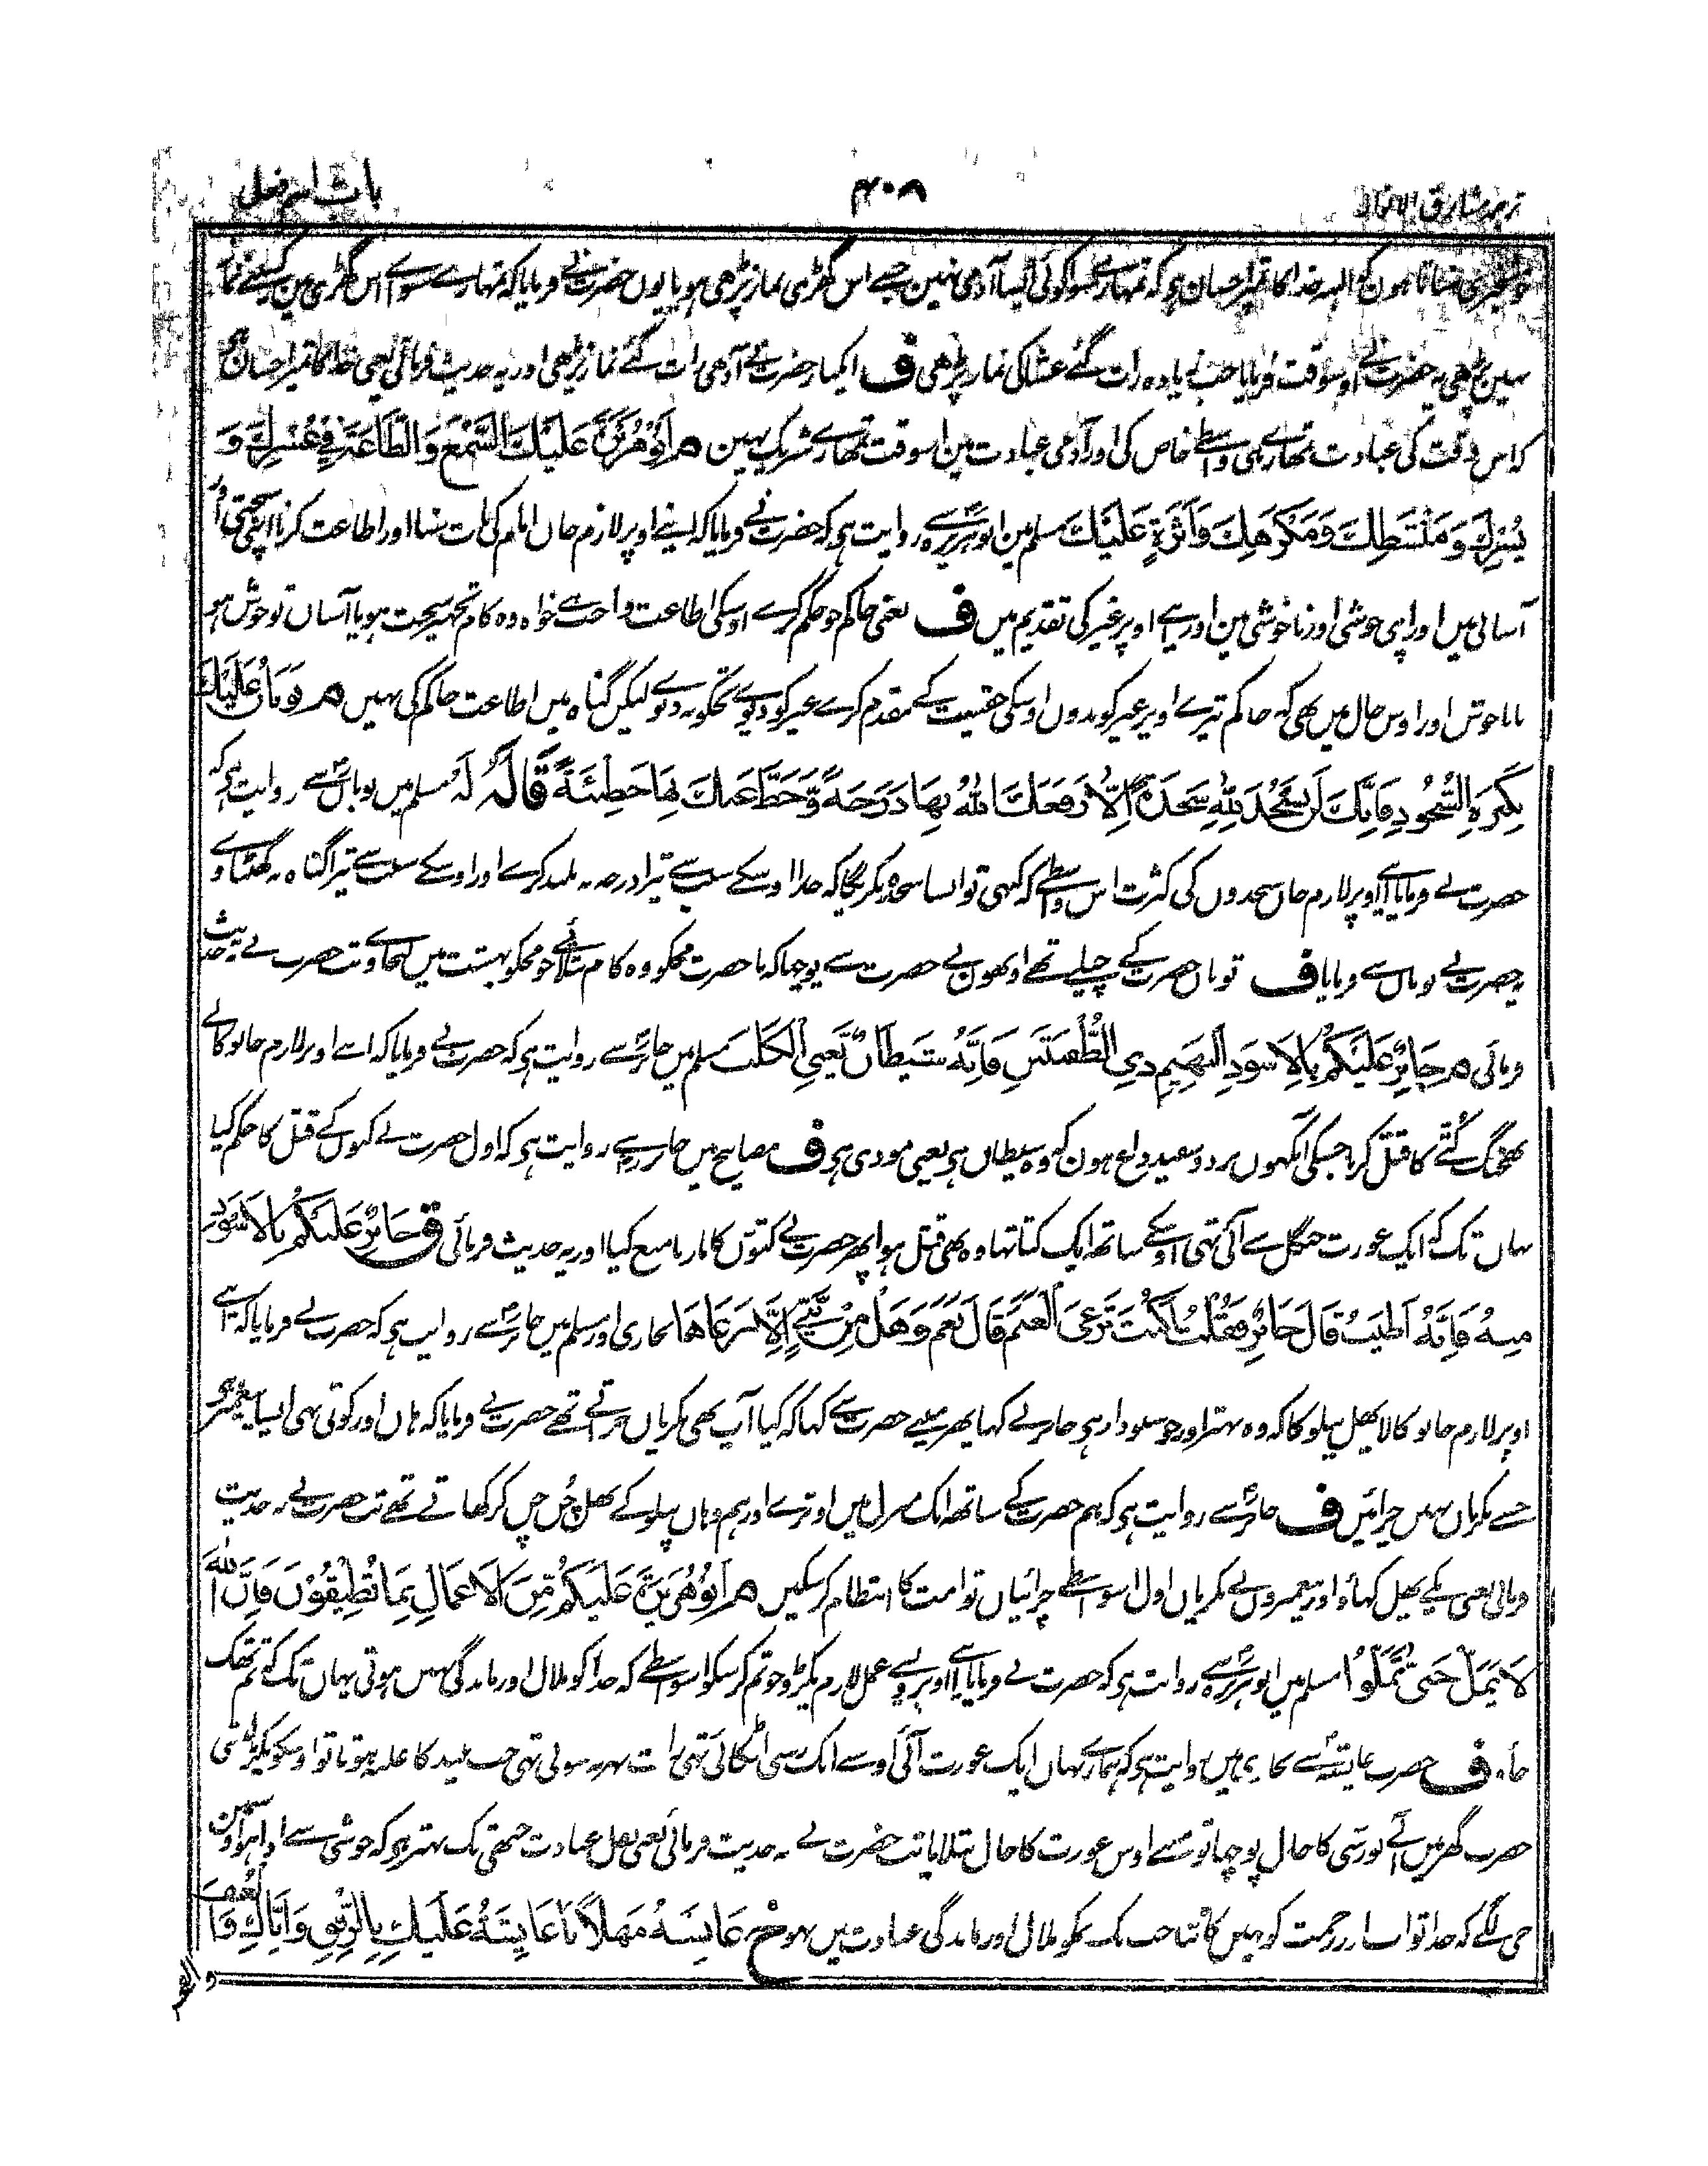 ترجمہ مشارق الانوار ۴۰۸ باب
خوشخبری سناتا ہون کہ البتہ خدا کا تمپر احسان ہی کہ تمہارے سوا کوئی ایسا آدمی نہین جسے اس گھڑی نماز پڑھی ہو یا یوں حضرت نے فرمایا کہ تمہارے سوا اس گھڑی مین کسینے نماز
نہین پڑھی یہ حضرت نے اوسوقت فرمایا جب زیادہ رات گئے عشا کی نماز پڑھی ف ایکبار حضرت نے آدھی رات گئے نماز پڑھی اور یہ حدیث فرمائی یعنی خدا کا تمپر احسان ہی
کہ اس وقت کی عبادت تمھارے ہی واسطے خاص کی اور آدمی عبادت مین اسوقت تمھارے شریک نہین م اَبُو هُرَيْرَةَ عَلَيْكَ السَّمْعَ وَالطَّاعَةَ فِي عُسْرِكَ وَ
يُسْرِكَ وَمَنْشَطِكَ وَمَكْرَهِكَ وَاَثَرَةٍ عَلَيْكَ مسلم مین ابو ہریرہ سے روایت ہی کہ حضرت نے فرمایا کہ اپنے اوپر لازم جان امام کی بات سننا اور اطاعت کرنا اپنی سختی اور
آسانی میں اور اپنی خوشی اور ناخوشی مین اور اپنے اوپر غیر کی تقدیم میں ف یعنی حاکم جو حکم کرے اوسکی اطاعت واجب ہے خواہ وہ کام تجھپر سخت ہو یا آسان تو خوش ہو
یا ناخوش اور اوس حال میں بھی کہ حاکم تیرے اوپر غیر کو بدون اوسکی حقیت کے مقدم کرے غیر کو دیوے تجکو نہ دیوے لیکن گناہ میں اطاعت حاکم کی نہیں م ثَوْبَانُ عَلَيْكَ
بِكَثْرَةِ السُّجُوْدِ فَاِنَّكَ لَنْ تَسْجُدَ لِلّٰهِ سَجْدَةً اِلَّا رَفَعَكَ اللّٰهُ بِهَا دَرَجَةً وَّحَطَّ عَنْكَ بِهَا خَطِيْئَةً قَالَهٗ لَهٗ مسلم میں ثوبان سے روایت ہی کہ
حضرت نے فرمایا اپنے اوپر لازم جان سجدوں کی کثرت اس واسطے کہ کبھی تو ایسا سجدہ نکریگا کہ خدا اوسکے سبب سے تیرا درجہ نہ بلند کرے اور اوسکے سبب سے تیرا گناہ نہ گھٹاوے
یہ حضرت نے ثوبان سے فرمایا ف ثوبان حضرت کے چیلے تھے اونھون نے حضرت سے پوچھا کہ یا حضرت مجکو وہ کام بتلائے جو مجکو بہشت میں لیجاوے تب حضرت نے یہ حدیث
فرمائی م جَابِرٌ عَلَيْكُمْ بِالْاَسْوَدِ الْبَهِيْمِ ذِي الطُّفْيَتَيْنِ فَاِنَّهٗ شَيْطَانٌ يَعْنِي الْكَلْبَ مسلم میں جابر سے روایت ہی کہ حضرت نے فرمایا کہ اپنے اوپر لازم جانو کالے
بھجنگ کتے کا قتل کرنا جسکی آنکھوں پر دو سفید داغ ہون کہ وہ شیطان ہی یعنی موذی ہی ف مصابیح میں جابر سے روایت ہی کہ اول حضرت نے کتوں کے قتل کا حکم کیا
یہاں تک کہ ایک عورت جنگل سے آئی تھی اوسکے ساتھ ایک کتا تھا وہ بھی قتل ہوا پھر حضرت نے کتوں کا مارنا منع کیا اور یہ حدیث فرمائی ق جَابِرٌ عَلَيْكُمْ بِالْاَسْوَدِ
مِنْهُ فَاِنَّهٗ اَطْيَبُ قَالَ جَابِرٌ فَقُلْتُ اَكُنْتَ تَرْعَى الْغَنَمَ قَالَ نَعَمْ وَهَلْ مِنْ نَبِيٍّ اِلَّا رَعَاهَا بخاری اور مسلم میں جابر سے روایت ہی کہ حضرت نے فرمایا کہ اپنے
اوپر لازم جانو کالا پھل پیلو کا کہ وہ بہتر اور خوشبودار ہی جابر نے کہا پھر مینے حضرت سے کہا کہ کیا آپ بھی بکریاں چراتے تھے حضرت نے فرمایا کہ ہاں اور کوئی بھی ایسا پیغمبر ہی
جسنے بکریاں نہیں چرائیں ف جابر سے روایت ہی کہ ہم حضرت کے ساتھ ایک منزل میں اوترے اور ہم وہاں پیلو کے پھل چن چن کر کھاتے تھے تب حضرت نے یہ حدیث
فرمائی یعنی پکے پھل کھاؤ اور پیغمبروں نے بکریاں اول اسواسطے چرائیاں تو امت کا انتظام کر سکیں م اَبُو هُرَيْرَةَ عَلَيْكُمْ مِّنَ الْاَعْمَالِ بِمَا تُطِيْقُوْنَ فَاِنَّ اللّٰهَ
لَا يَمَلُّ حَتّٰى تَمَلُّوْا مسلم میں ابو ہریرہ سے روایت ہی کہ حضرت نے فرمایا اپنے اوپر وے عمل لازم پکڑو جو تم کر سکو اسواسطے کہ خدا کو ملال اور ماندگی نہیں ہوتی یہاں تک کہ تم تھک
جاؤ ف حضرت عایشہ سے بخاری میں روایت ہی کہ ہمارے یہاں ایک عورت آئی اوسنے ایک رسی لٹکائی تھی رات بھر نہ سوتی تھی جب نیند کا غلبہ ہوتا تو اوسکو پکڑ لیتی
حضرت گھر میں آئے تو رسی کا حال پوچھا تو مینے اوس عورت کا حال بتلایا تب حضرت نے یہ حدیث فرمائی یعنی نفل عبادت جبھی تک بہتر ہی کہ خوشی سے ادا ہو اوسمین
جی لگے کہ خدا تو اپنا دررحمت کو نہیں کاٹتا جب تک تمکو ملال اور ماندگی عبادت میں نہو خ عَايِشَةُ مَهْلًا يَا عَايِشَةُ عَلَيْكِ بِالرِّفْقِ وَاِيَّاكِ وَالْعُنْفَ